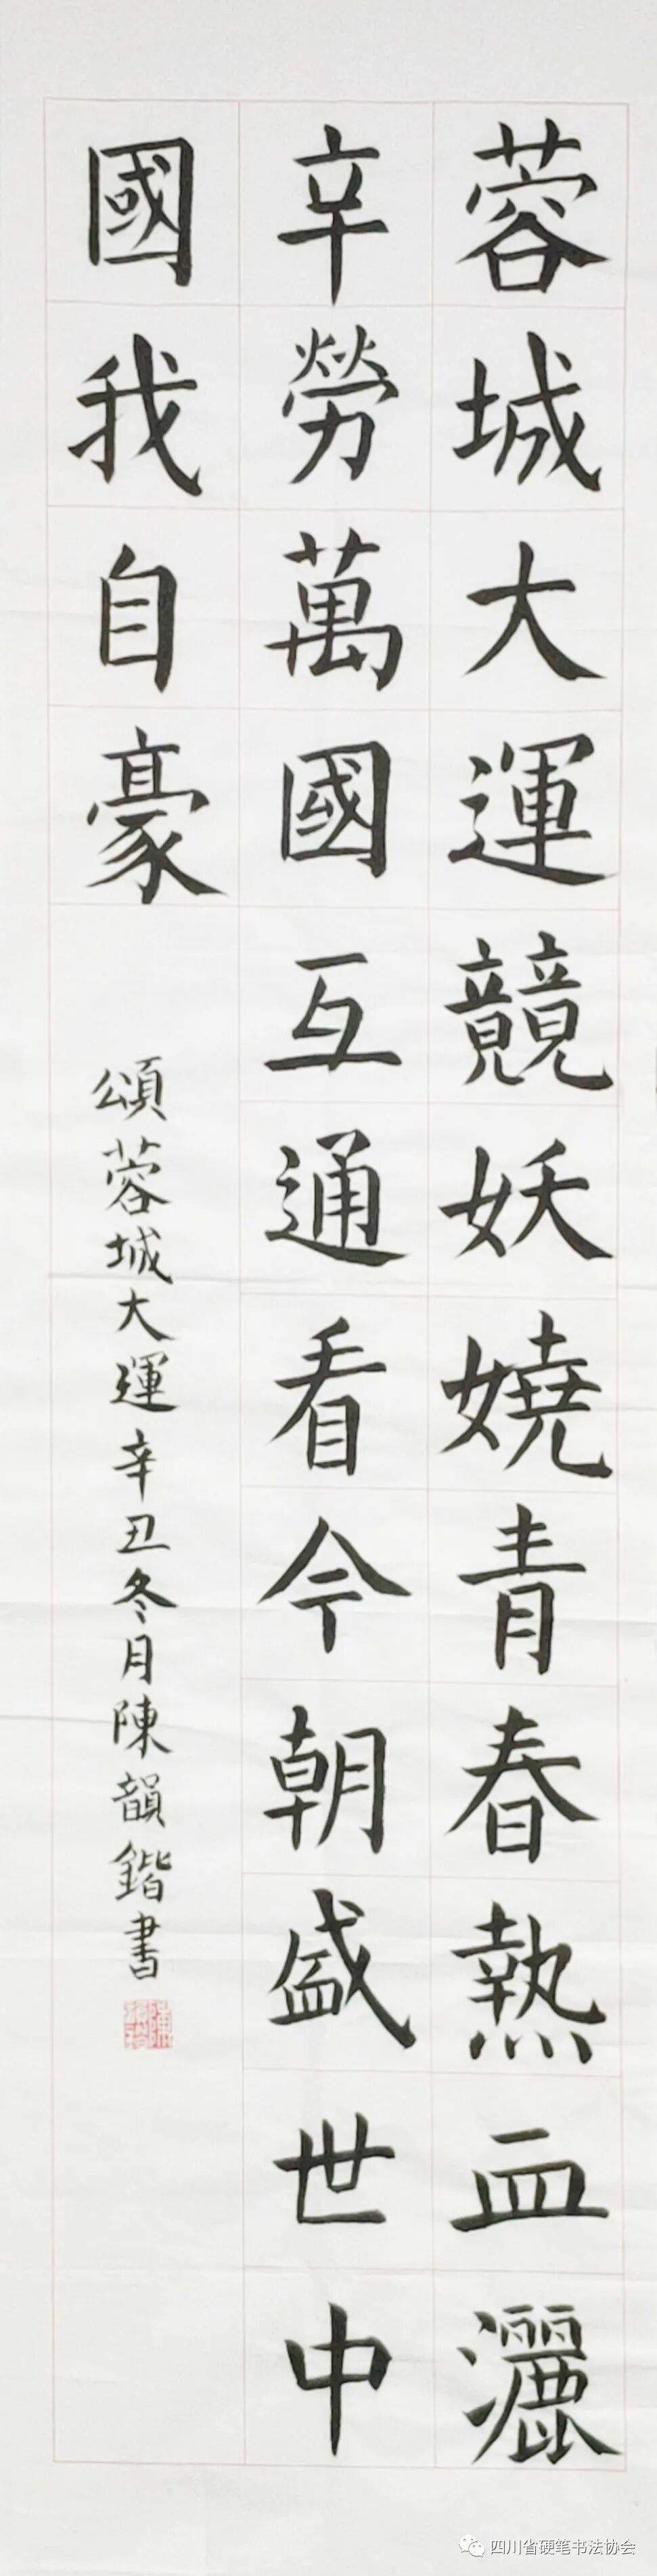 蓉城大運競妖嬈青春熱血灑
辛勞萬國互通看今朝盛世中
國我自豪
頌蓉城大運辛丑冬月陳韻鍇書
四川省硬笔书法协会